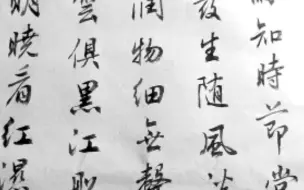 知時節當
發生随風
潤物細無聲
雲俱黑江船
明曉看紅濕